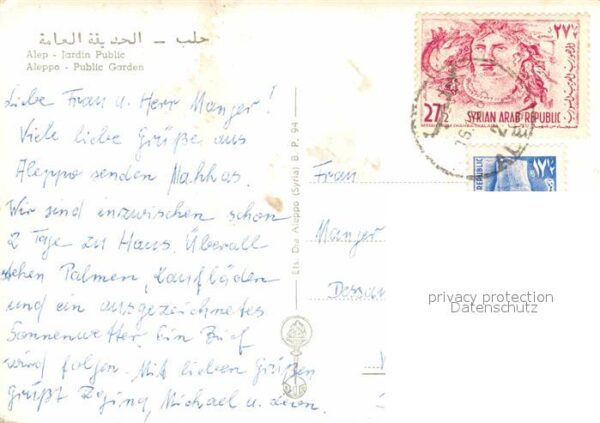 حلب - الحديقة العامة
Alep - Jardin Public
Aleppo - Public Garden
Liebe Frau u. Herr Manger!
Viele liebe Grüße aus
Aleppo senden Nahhas.
Wir sind inzwischen schon
2 Tage zu Haus. Überall
stehen Palmen, Kaufläden
und ein ausgezeichnetes
Sonnenwetter. Ein Brief
wird folgen. Mit lieben Grüßen
grüßt Regina, Michael u.
Ets. Dia Aleppo (Syria) B. P. 94
27½
SYRIAN ARAB REPUBLIC
٢٧½
REPUBLIC
Frau
Manger
Dessau
privacy protection
Datenschutz